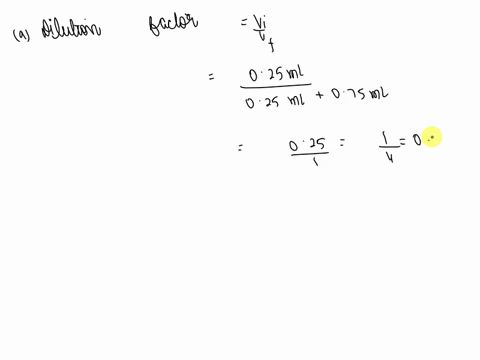 (a) Dilution factor = Vi / Vf
= 0.25 ml / 0.25 ml + 0.75 ml
= 0.25 / 1 = 1 / 4 = 0.